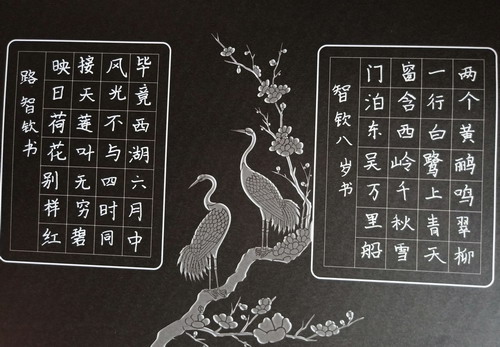 两个黄鹂鸣翠柳
一行白鹭上青天
窗含西岭千秋雪
门泊东吴万里船
智钦八岁书
毕竟西湖六月中
风光不与四时同
接天莲叶无穷碧
映日荷花别样红
路智钦书